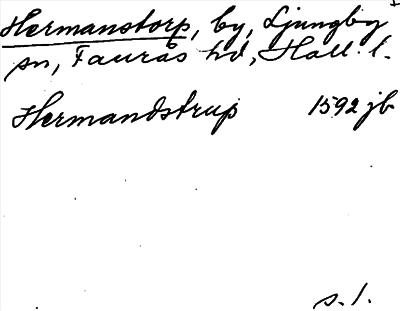 Hermanstorp, by, Ljungby
sn, Faurås hd, Hall. l.
Hermandstrup 1592 jb
s. 1.